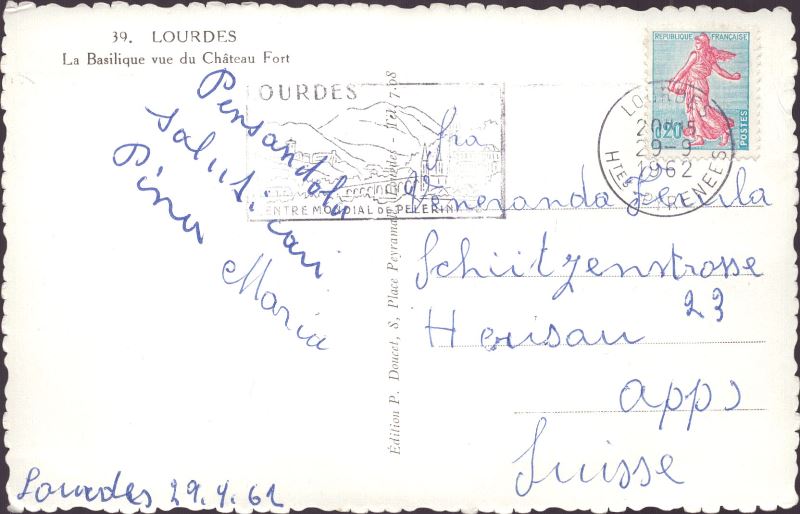 39. LOURDES
La Basilique vue du Château Fort
Pensandola
salut. cari
Pina
Maria
Lourdes 29.9.62
Édition P. Doucet, 8, Place Peyramale, Lourdes - Tél. 7.08
OURDES
CENTRE MONDIAL DE PELERIN
REPUBLIQUE FRANÇAISE
0,20
POSTES
LOURDES
20H15
29-9
1962
HTES PYRENEES
fra
Veneranda
Schützenstrasse
23
Herisau
App)
Suisse